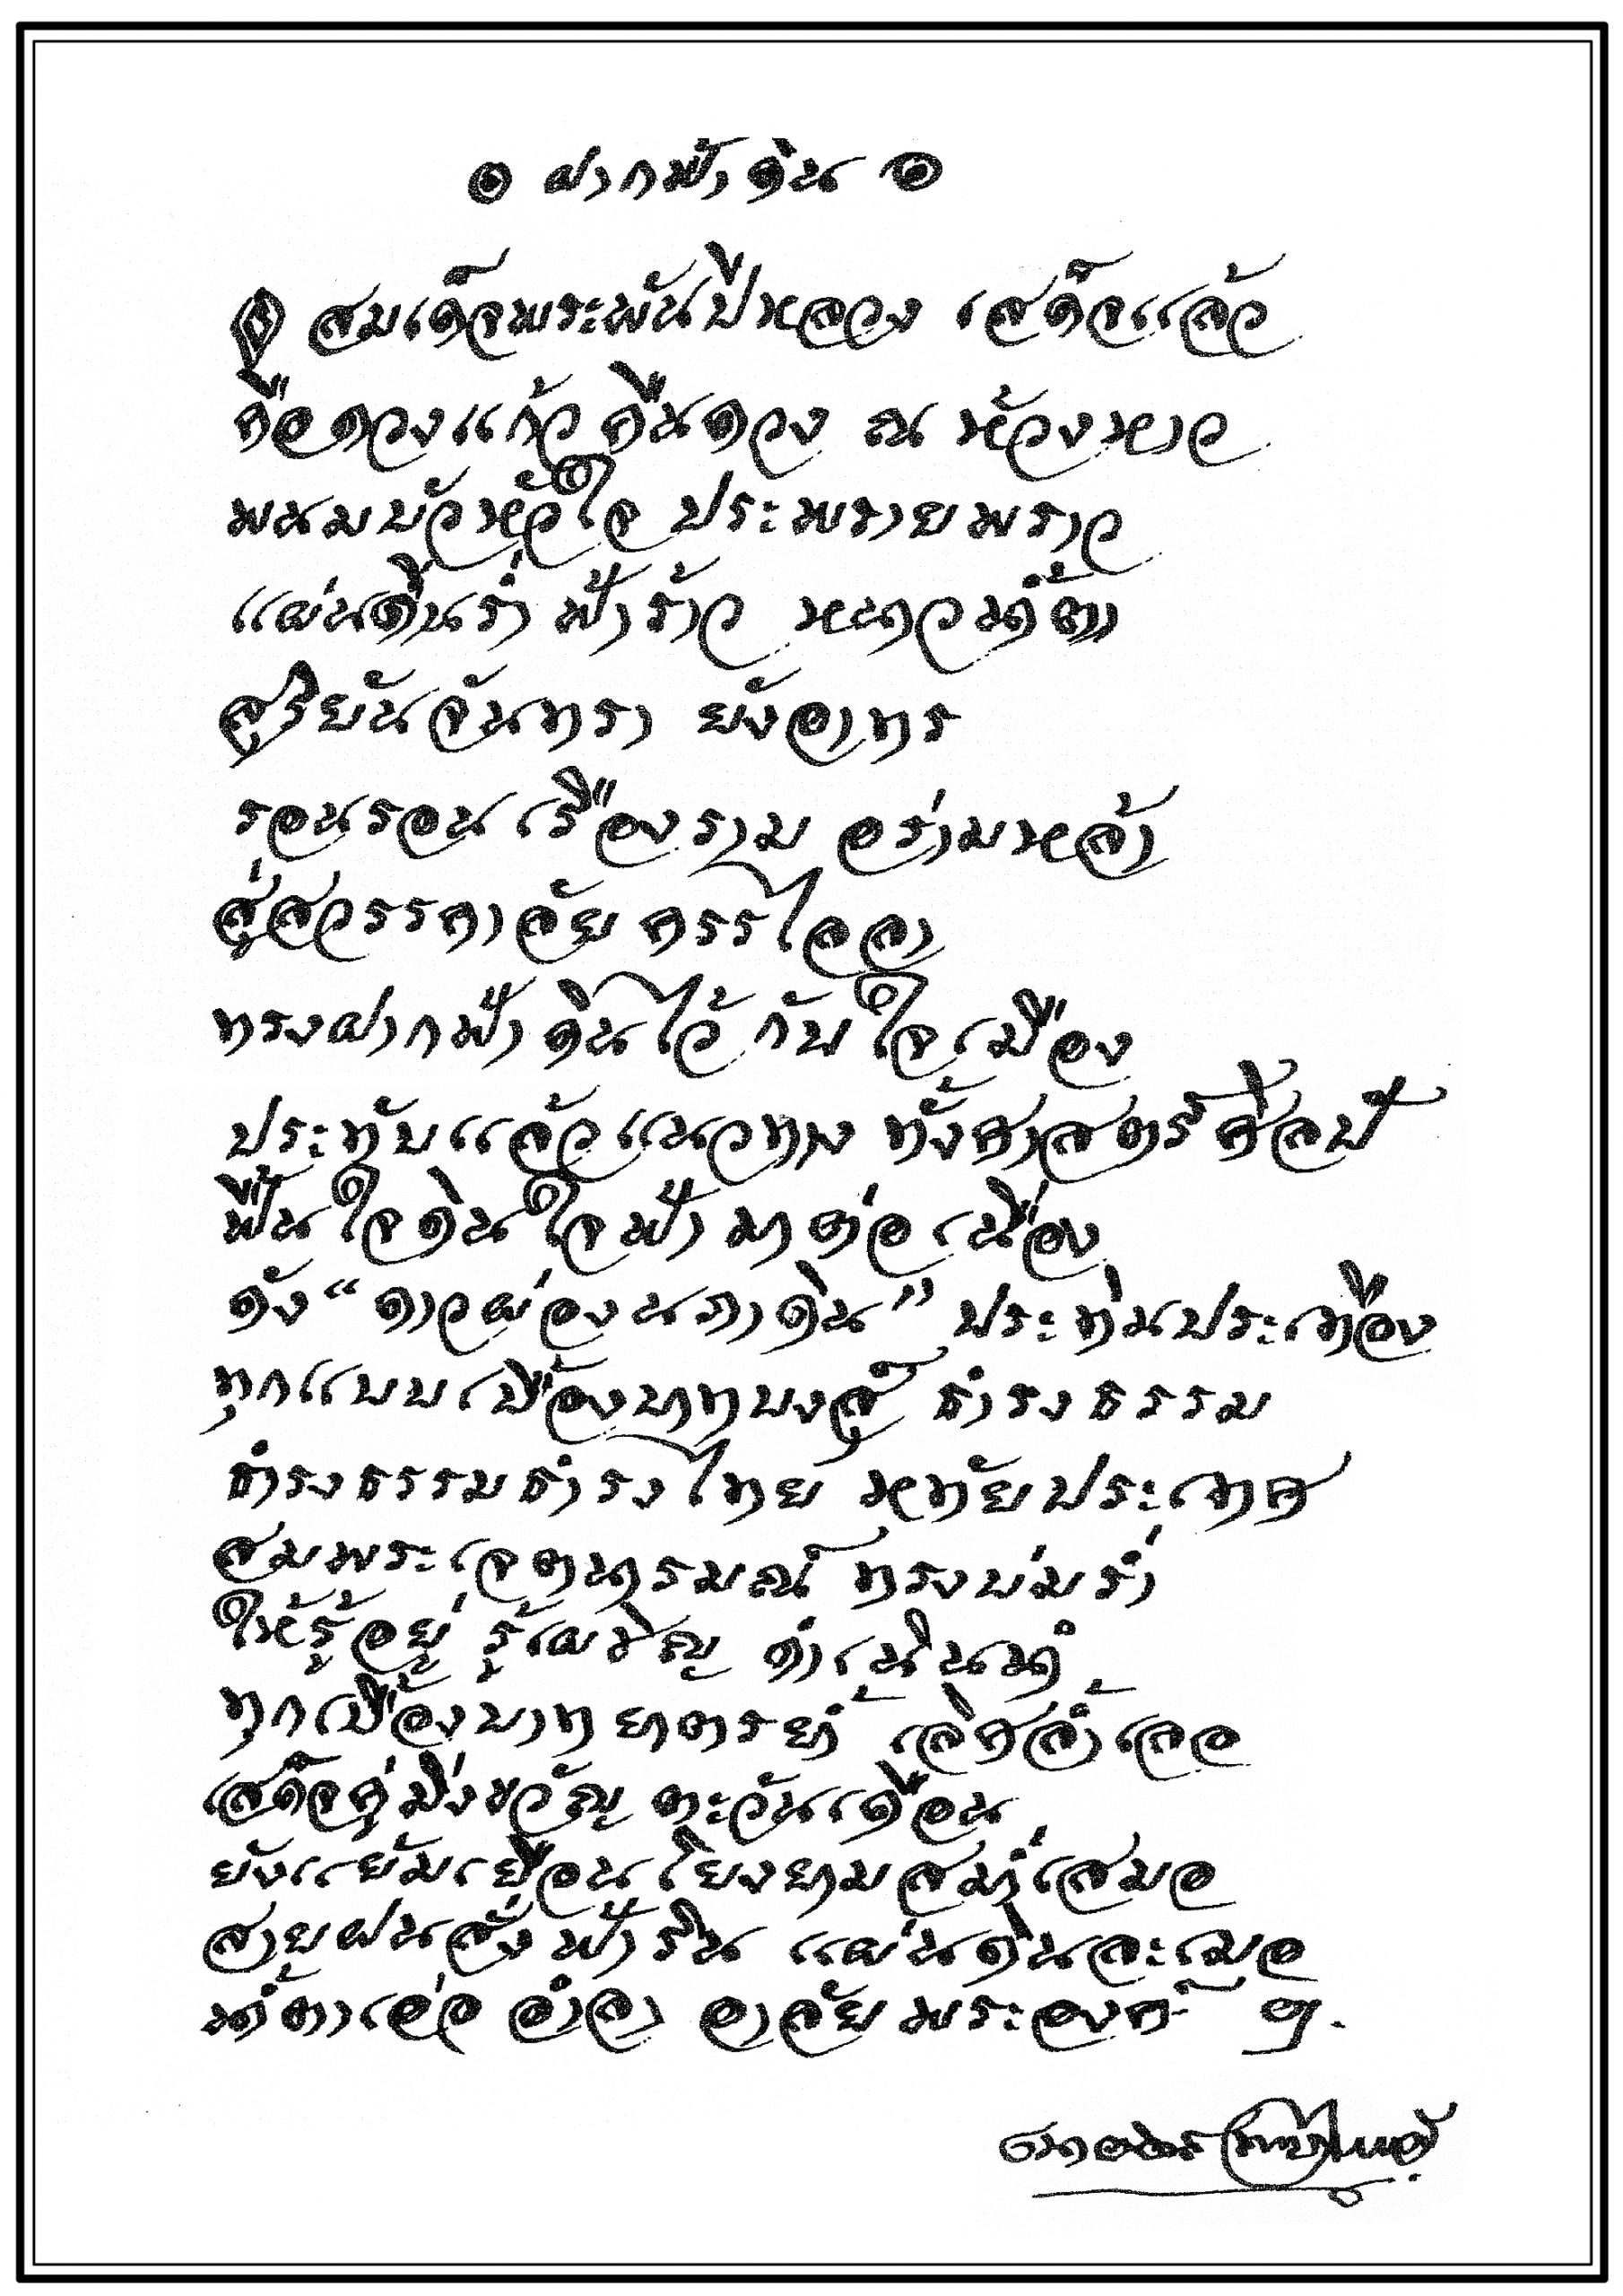 ๏ ฝากฟ้าดิน ๏
สมเด็จพระพันปีหลวง เสด็จแล้ว
คือดวงแก้วคืนดวง ณ ห้วงหาว
พนมบัวหัวใจ ประพรายพราว
แผ่นดินร่ำ ฟ้าร้าว หนาวน้ำตา
สุริยันจันทรา ยังอาทร
รอนรอน เรืองราม อร่ามหล้า
สู่สวรรคาลัย ครรไลลา
ทรงฝากฟ้าดินไว้ กับใจเมือง
ประทับแล้วแนวทาง ทั้งศาสตร์ศิลป์
ฟื้นใจดินใจฟ้า มาต่อเนื่อง
ดัง “ดาวผ่องนภาดิน” ประทิ่นประเทือง
ทุกแบบเบื้องบาทบงสุ์ ธำรงธรรม
ธำรงธรรมธำรงไทย หทัยประเทศ
สมพระเจตนารมณ์ ทรงบ่มร่ำ
ให้รู้อยู่ รู้เผชิญ ดำเนินนำ
ทุกเบื้องบาทยาตรย้ำ เลิศล้ำเลอ
เสด็จคู่มิ่งขวัญ ตะวันเดือน
ยังแย้มเยือนโยงยามสม่ำเสมอ
สายฝนสั่งฟ้าริน แผ่นดินละเมอ
น้ำตาเอ่อ อำลา อาลัยพระองค์ ฯ
เนาวรัตน์ พงษ์ไพบูลย์